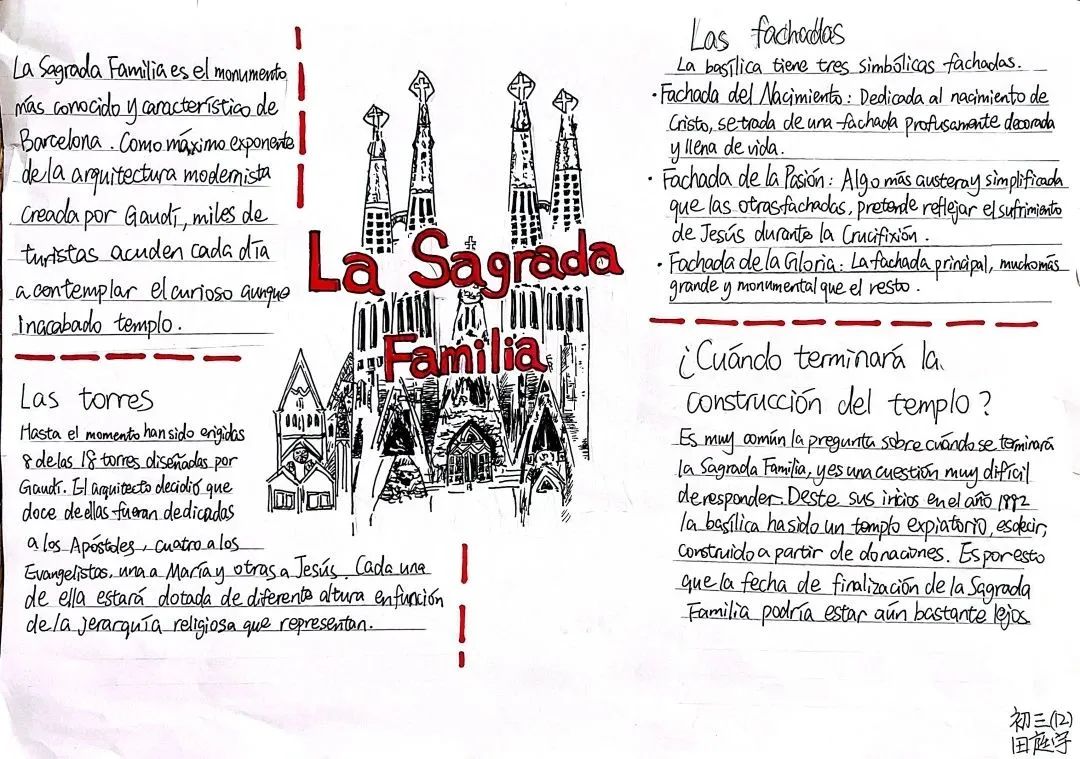 La Sagrada Familia es el monumento
más conocido y característico de
Barcelona. Como máximo exponente
de la arquitectura modernista
creada por Gaudí, miles de
turistas acuden cada día
a contemplar el curioso aunque
inacabado templo.
Las torres
Hasta el momento han sido erigidas
8 de las 18 torres diseñadas por
Gaudí. El arquitecto decidió que
doce de ellas fueran dedicadas
a los Apóstoles, cuatro a los
Evangelistas, una a María y otras a Jesús. Cada una
de ella estará dotada de diferente altura en función
de la jerarquía religiosa que representan.
La Sagrada
Familia
Las fachadas
La basílica tiene tres simbólicas fachadas.
· Fachada del Nacimiento: Dedicada al nacimiento de
Cristo, se trada de una fachada profusamente decorada
y llena de vida.
· Fachada de la Pasión: Algo más austera y simplificada
que las otras fachadas, pretende reflejar el sufrimiento
de Jesús durante la Crucifixión.
· Fachada de la Gloria: La fachada principal, mucho más
grande y monumental que el resto.
¿Cuándo terminará la
construcción del templo?
Es muy común la pregunta sobre cuándo se terminará
la Sagrada Familia, y es una cuestión muy difícil
de responder. Deste sus inicios en el año 1882
la basílica ha sido un templo expiatorio, es decir,
construido a partir de donaciones. Es por esto
que la fecha de finalización de la Sagrada
Familia podría estar aún bastante lejos
初三(12)
田庭宇